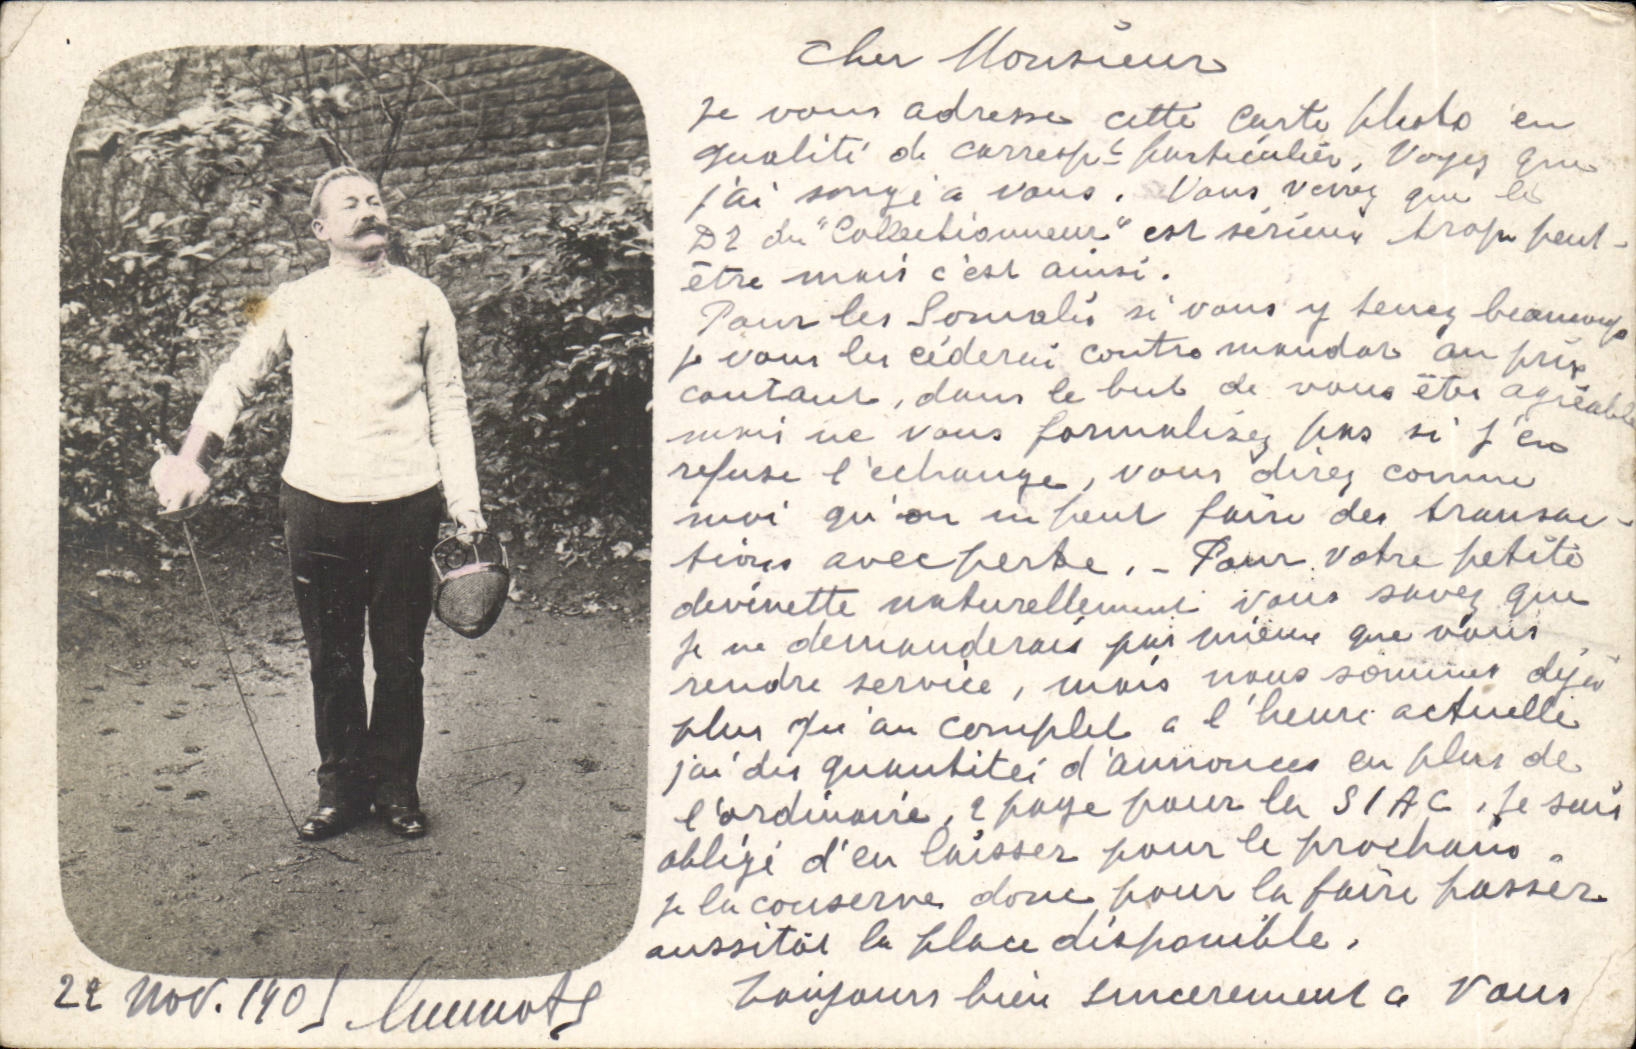 Cher Monsieur
je vous adresse cette carte photo en
qualité de corresp.t particulier, Voyez que
j'ai songé a vous. Vous verrez que le
D2 du "Collectionneur" est sérieux trop peut-
être mais c'est ainsi.
Pour les Somalis si vous y tenez beaucoup
je vous les céderai contre mandat au prix
coutant, dans le but de vous être agréable
mais ne vous formalisez pas si j'en
refuse l'echange, vous direz comme
moi qu'on ne peut faire des transac-
tions avec perte. - Pour votre petite
devinette naturellement vous savez que
je ne demanderais pas mieux que vous
rendre service, mais nous sommes déjà
plus qu'au complet a l'heure actuelle
j'ai des quantités d'annonces en plus de
l'ordinaire, 2 page pour la SIAC. Je suis
obligé d'en laisser pour le prochain.
je la conserve donc pour la faire passer
aussitôt la place disponible.
Toujours bien sincerement a Vous
22 Nov. 1905